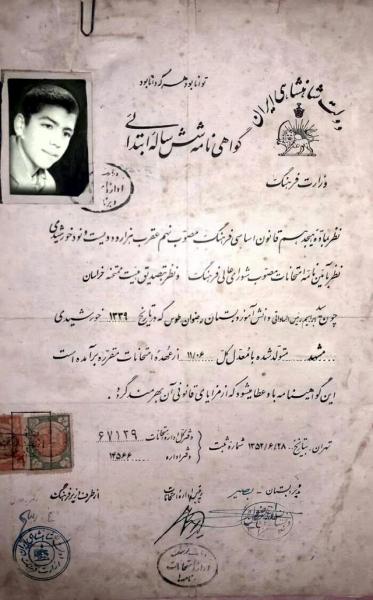 توانا بود هر که دانا بود
دولت شاهنشاهی ایران
گواهی نامه شش ساله ابتدائی
وزارت فرهنگ
نظر بماده هیجدهم قانون اساسی فرهنگ مصوب نهم عقرب هزار و دویست و نود خورشیدی
نظر بآئین نامه امتحانات مصوب شورای عالی فرهنگ و نظر بتصدیق هیئت ممتحنه خراسان
چون سید ابراهیم رئیس الساداتی دانش آموز دبستان رضوان طوس که در تاریخ ۱۳۳۹ خورشیدی
مشهد متولد شده با معدل کل ۱۱/۰۶ از عهده امتحانات مقرره برآمده است
این گواهینامه باو عطا میشود که از مزایای قانونی آن بهره مند گردد.
تهران، بتاریخ ۱۳۵۲/۶/۲۸ شماره ثبت
دفتر کل اداره امتحانات ۶۷۱۲۹
دفتر اداره ۱۴۵۶۶
مدیر دبستان - بصیر
رئیس اداره امتحانات
از طرف وزیر فرهنگ